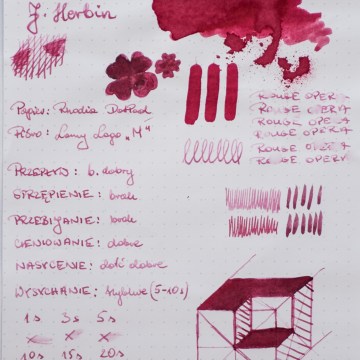 J. Herbin
ROUGE OPERA
ROUGE OPERA
ROUGE OPERA
ROUGE OPERA
ROUGE OPERA
ROUGE OPERA
Papier: Rhodia DotPad
Pióro: Lamy Logo „M"
PRZEPŁYW: b. dobry
STRZĘPIENIE: brak
PRZEBIJANIE: brak
CIENIOWANIE: dobre
NASYCENIE: dość dobre
WYSYCHANIE: szybkie (5-10s)
1s 3s 5s
10s 15s 20s